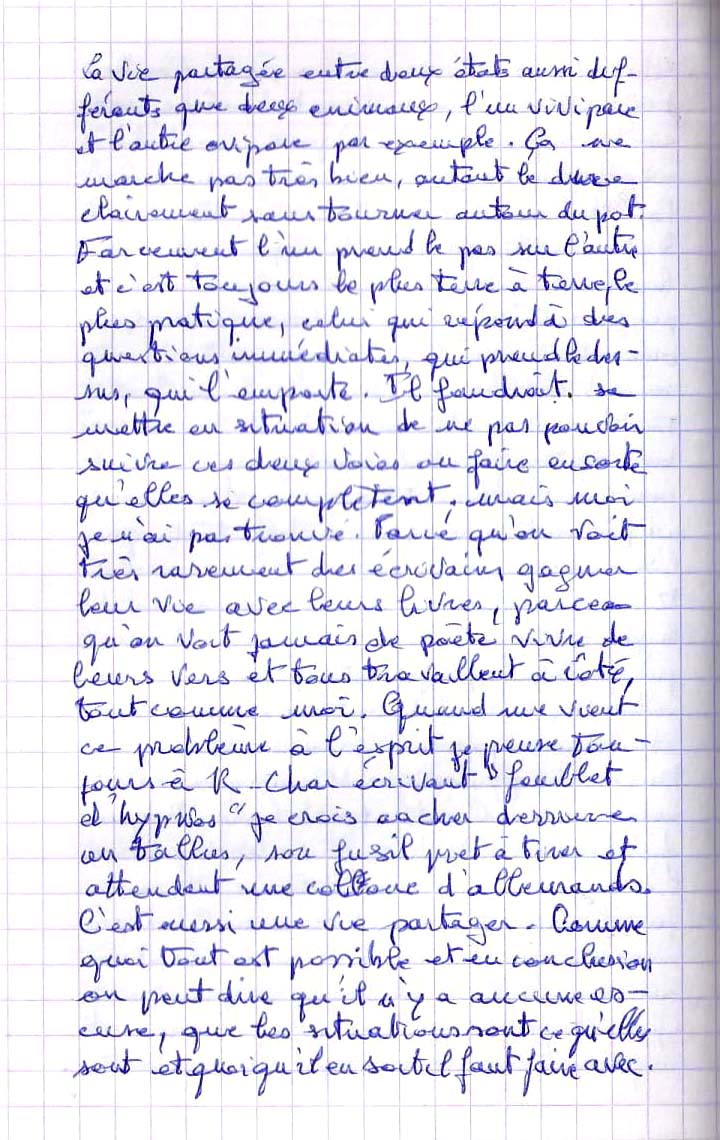 La vie partagée entre deux états aussi dif-
férents que deux animaux, l'un vivipare
et l'autre ovipare par exemple. Ça ne
marche pas très bien, autant le dire
clairement sans tourner autour du pot.
Forcement l'un prend le pas sur l'autre
et c'est toujours le plus terre à terre, le
plus pratique, celui qui répond à des
questions immédiates, qui prend le des-
sus, qui l'emporte. Il faudrait se
mettre en situation de ne pas pouvoir
suivre ces deux voies ou faire en sorte
qu'elles se complètent, mais moi
je n'ai pas trouvé. Parce qu'on voit
très rarement des écrivains gagner
leur vie avec leurs livres, parce
qu'on voit jamais de poète vivre de
leurs vers et tous travaillent à côté,
tout comme moi. Quand me vient
ce problème à l'esprit je pense tou-
jours à R. Char écrivant "feuillet
d'hypnos" je crois cacher derrière
un tallus, son fusil pret à tirer et
attendent une collone d'allemands.
C'est aussi une vie partager. Comme
quoi tout est possible et en conclusion
on peut dire qu'il n'y a aucune es-
cuse, que les situations sont ce qu'elles
sont et quoiqu'il en soit il faut faire avec.